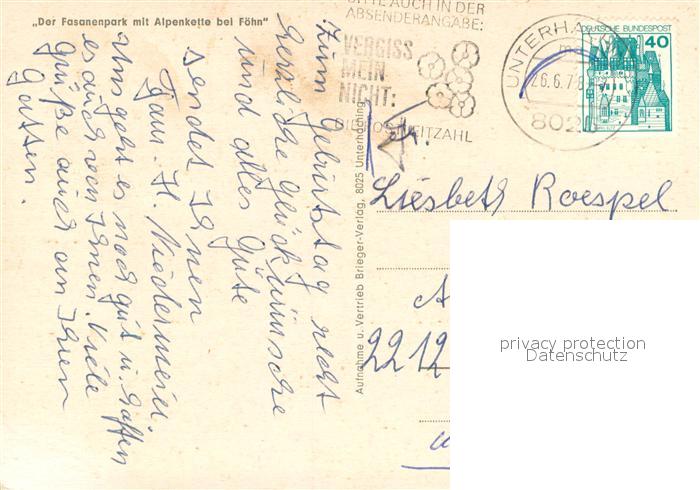 „Der Fasanenpark mit Alpenkette bei Föhn"
Zum Geburtstag recht
herzliche Glückwünsche
und alles Gute
sendet Ihnen
Fam. H. Niedermeier.
Uns geht es noch gut u. hoffen
es auch von Ihnen. Viele
Grüße auch an Ihren
Gatten.
Aufnahme u. Vertrieb Brieger-Verlag, 8025 Unterhaching
BITTE AUCH IN DER
ABSENDERANGABE:
VERGISS
MEIN
NICHT:
DIE POSTLEITZAHL
UNTERHA
26.6.78
802
DEUTSCHE BUNDESPOST
40
Fr.
Liesbeth Roespel
A
2212
privacy protection
Datenschutz